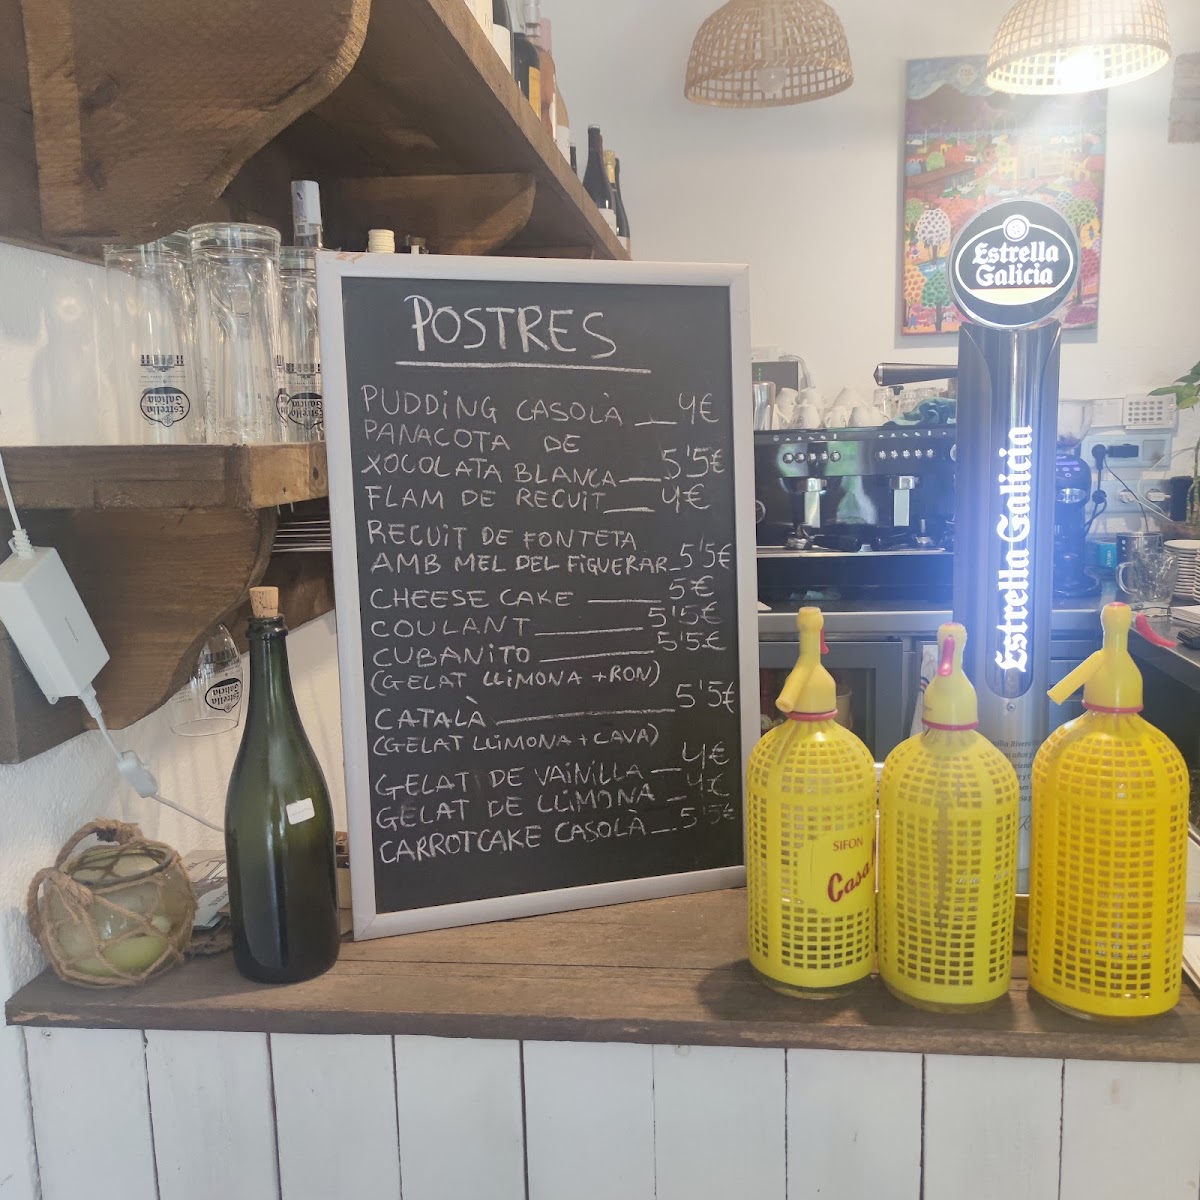 POSTRES
PUDDING CASOLÀ __ 4€
PANACOTA DE
XOCOLATA BLANCA __ 5'5€
FLAM DE RECUIT __ 4€
RECUIT DE FONTETA
AMB MEL DEL FIGUERAR _ 5'5€
CHEESE CAKE ____ 5€
COULANT ______ 5'5€
CUBANITO ______ 5'5€
(GELAT LLIMONA + RON)
CATALÀ ________ 5'5€
(GELAT LLIMONA + CAVA)
GELAT DE VAINILLA __ 4€
GELAT DE LLIMONA _ 4€
CARROTCAKE CASOLÀ __ 5'5€
Estrella
Galicia
Estrella Galicia
Estrella
Galicia
Estrella
Galicia
Estrella
Galicia
SIFON
Casa